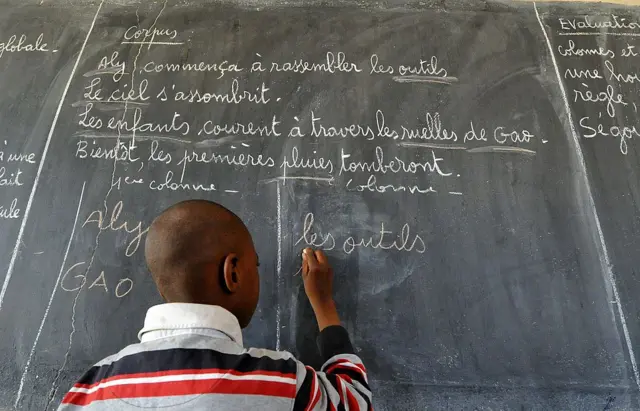 globale.
à une
fait
Corpus
Aly commença à rassembler les outils.
Le ciel s'assombrit.
Les enfants courent à travers les ruelles de Gao.
Bientôt les premières pluies tomberont.
1ère colonne
2ème colonne
Aly
GAO
les outils
Evaluation
colonnes et
une
règle
Ségou